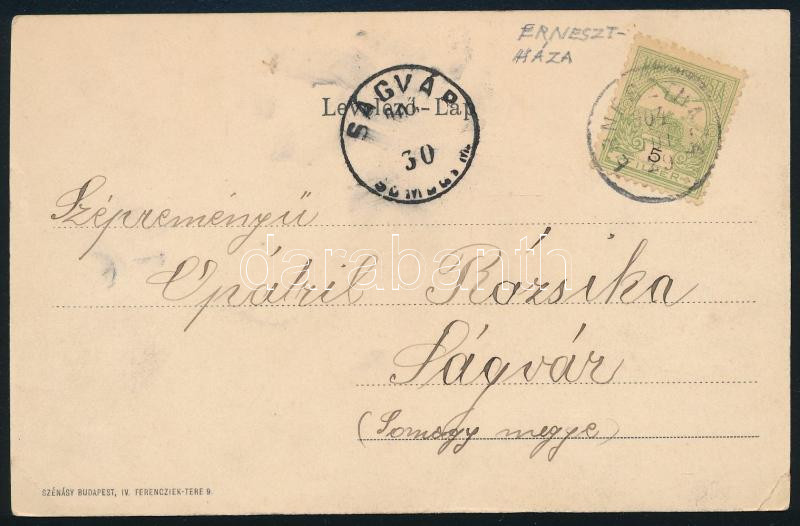 ERNESZT-
HÁZA
Levelező-Lap
SÁGVÁR
30
SOMOGY M.
904
5
FILLÉR
Szépreményű
Rózsika
Ságvár
(Somogy megye)
darabanth
SZÉNÁSY BUDAPEST, IV. FERENCZIEK-TERE 9.